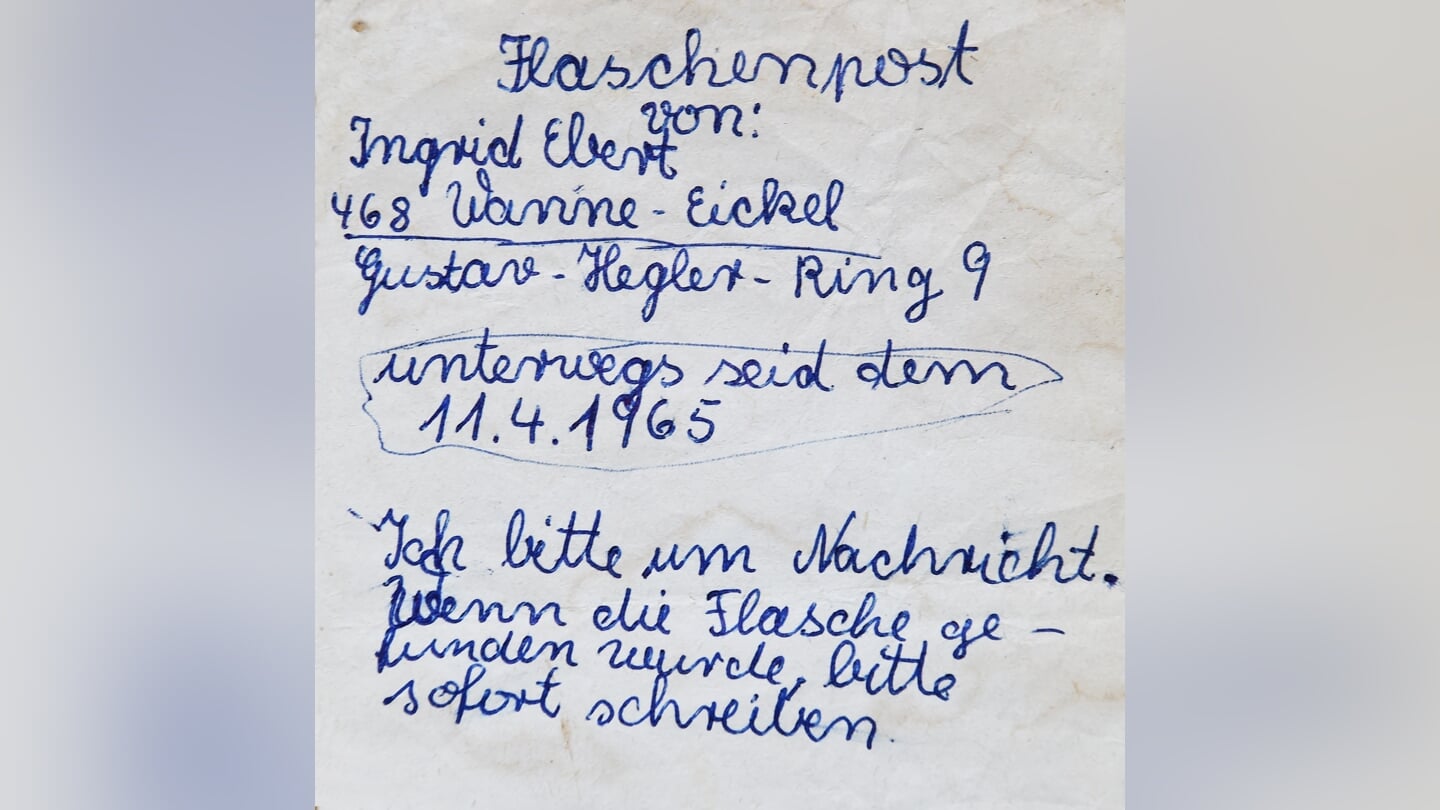 Flaschenpost
von:
Ingrid Ebert
468 Wanne-Eickel
Gustav-Hegler-Ring 9
unterwegs seid dem
11.4.1965
Ich bitte um Nachricht.
Wenn die Flasche ge-
funden wurde, bitte
sofort schreiben.